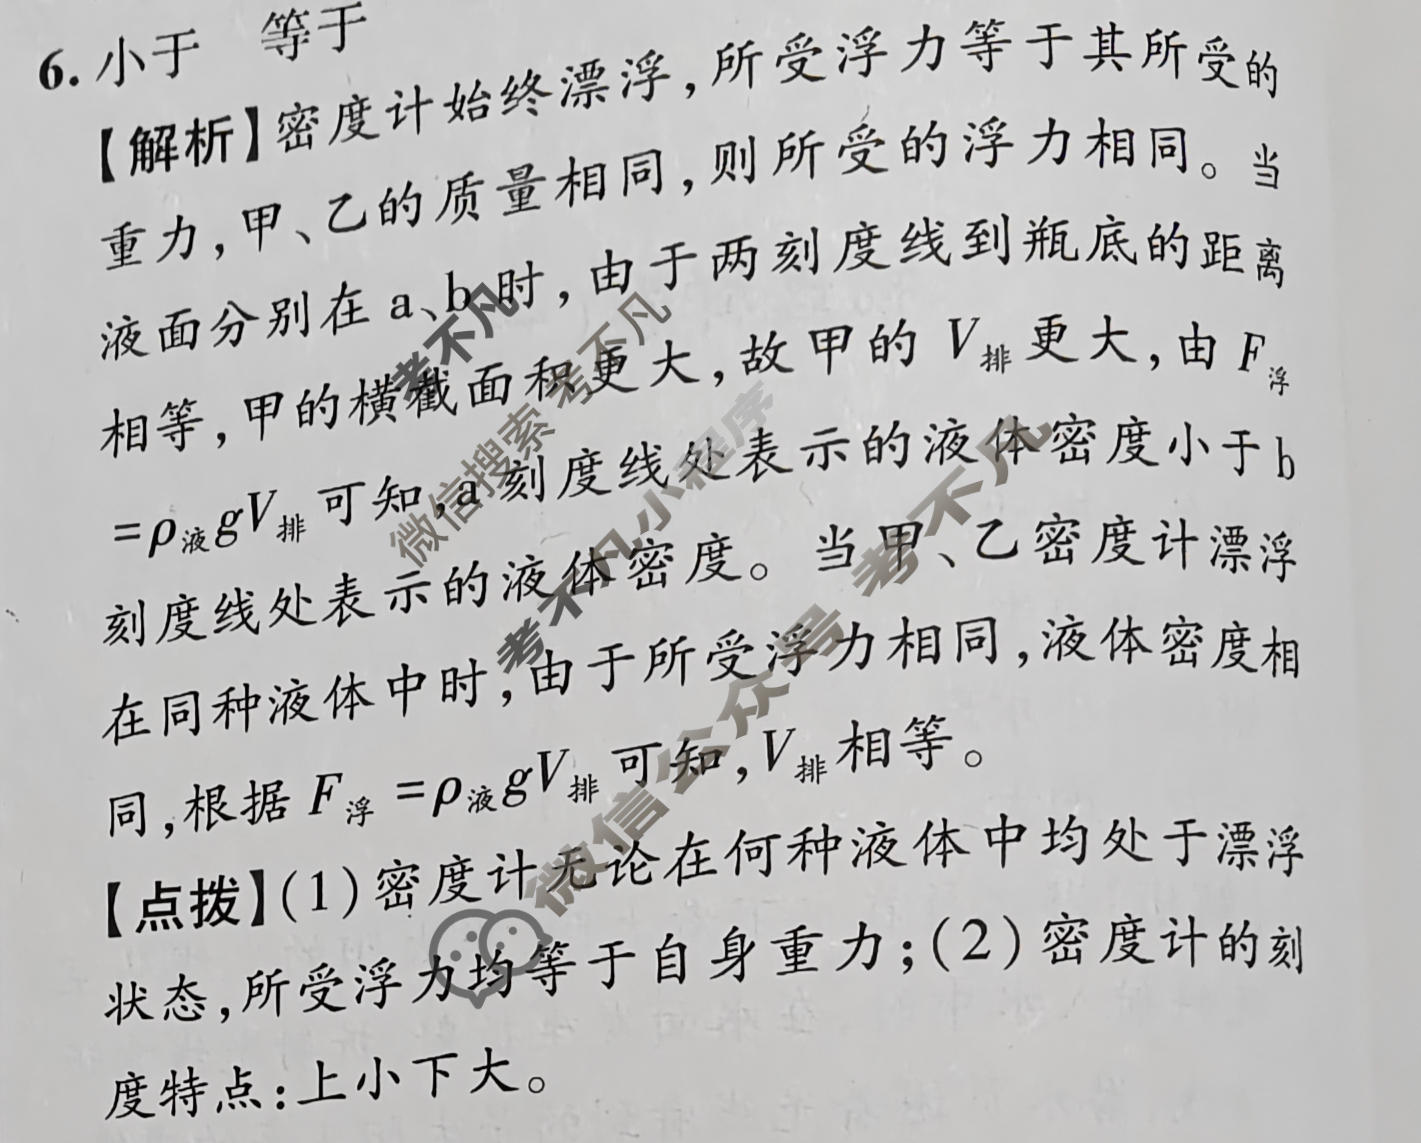 6. 小于　等于
【解析】密度计始终漂浮,所受浮力等于其所受的
重力,甲、乙的质量相同,则所受的浮力相同。当
液面分别在 a、b 时,由于两刻度线到瓶底的距离
相等,甲的横截面积更大,故甲的 V排更大,由 F浮
=ρ液gV排可知,a 刻度线处表示的液体密度小于 b
刻度线处表示的液体密度。当甲、乙密度计漂浮
在同种液体中时,由于所受浮力相同,液体密度相
同,根据 F浮=ρ液gV排可知,V排相等。
【点拨】(1)密度计无论在何种液体中均处于漂浮
状态,所受浮力均等于自身重力;(2)密度计的刻
度特点:上小下大。
考不凡
微信搜索 考不凡
考不凡小程序
微信公众号 考不凡